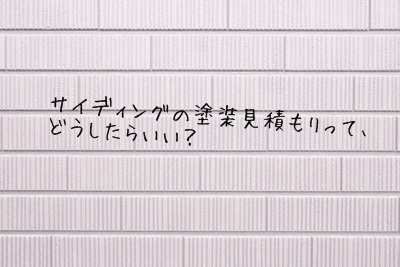 サイディングの塗装見積もりって、
どうしたらいい?